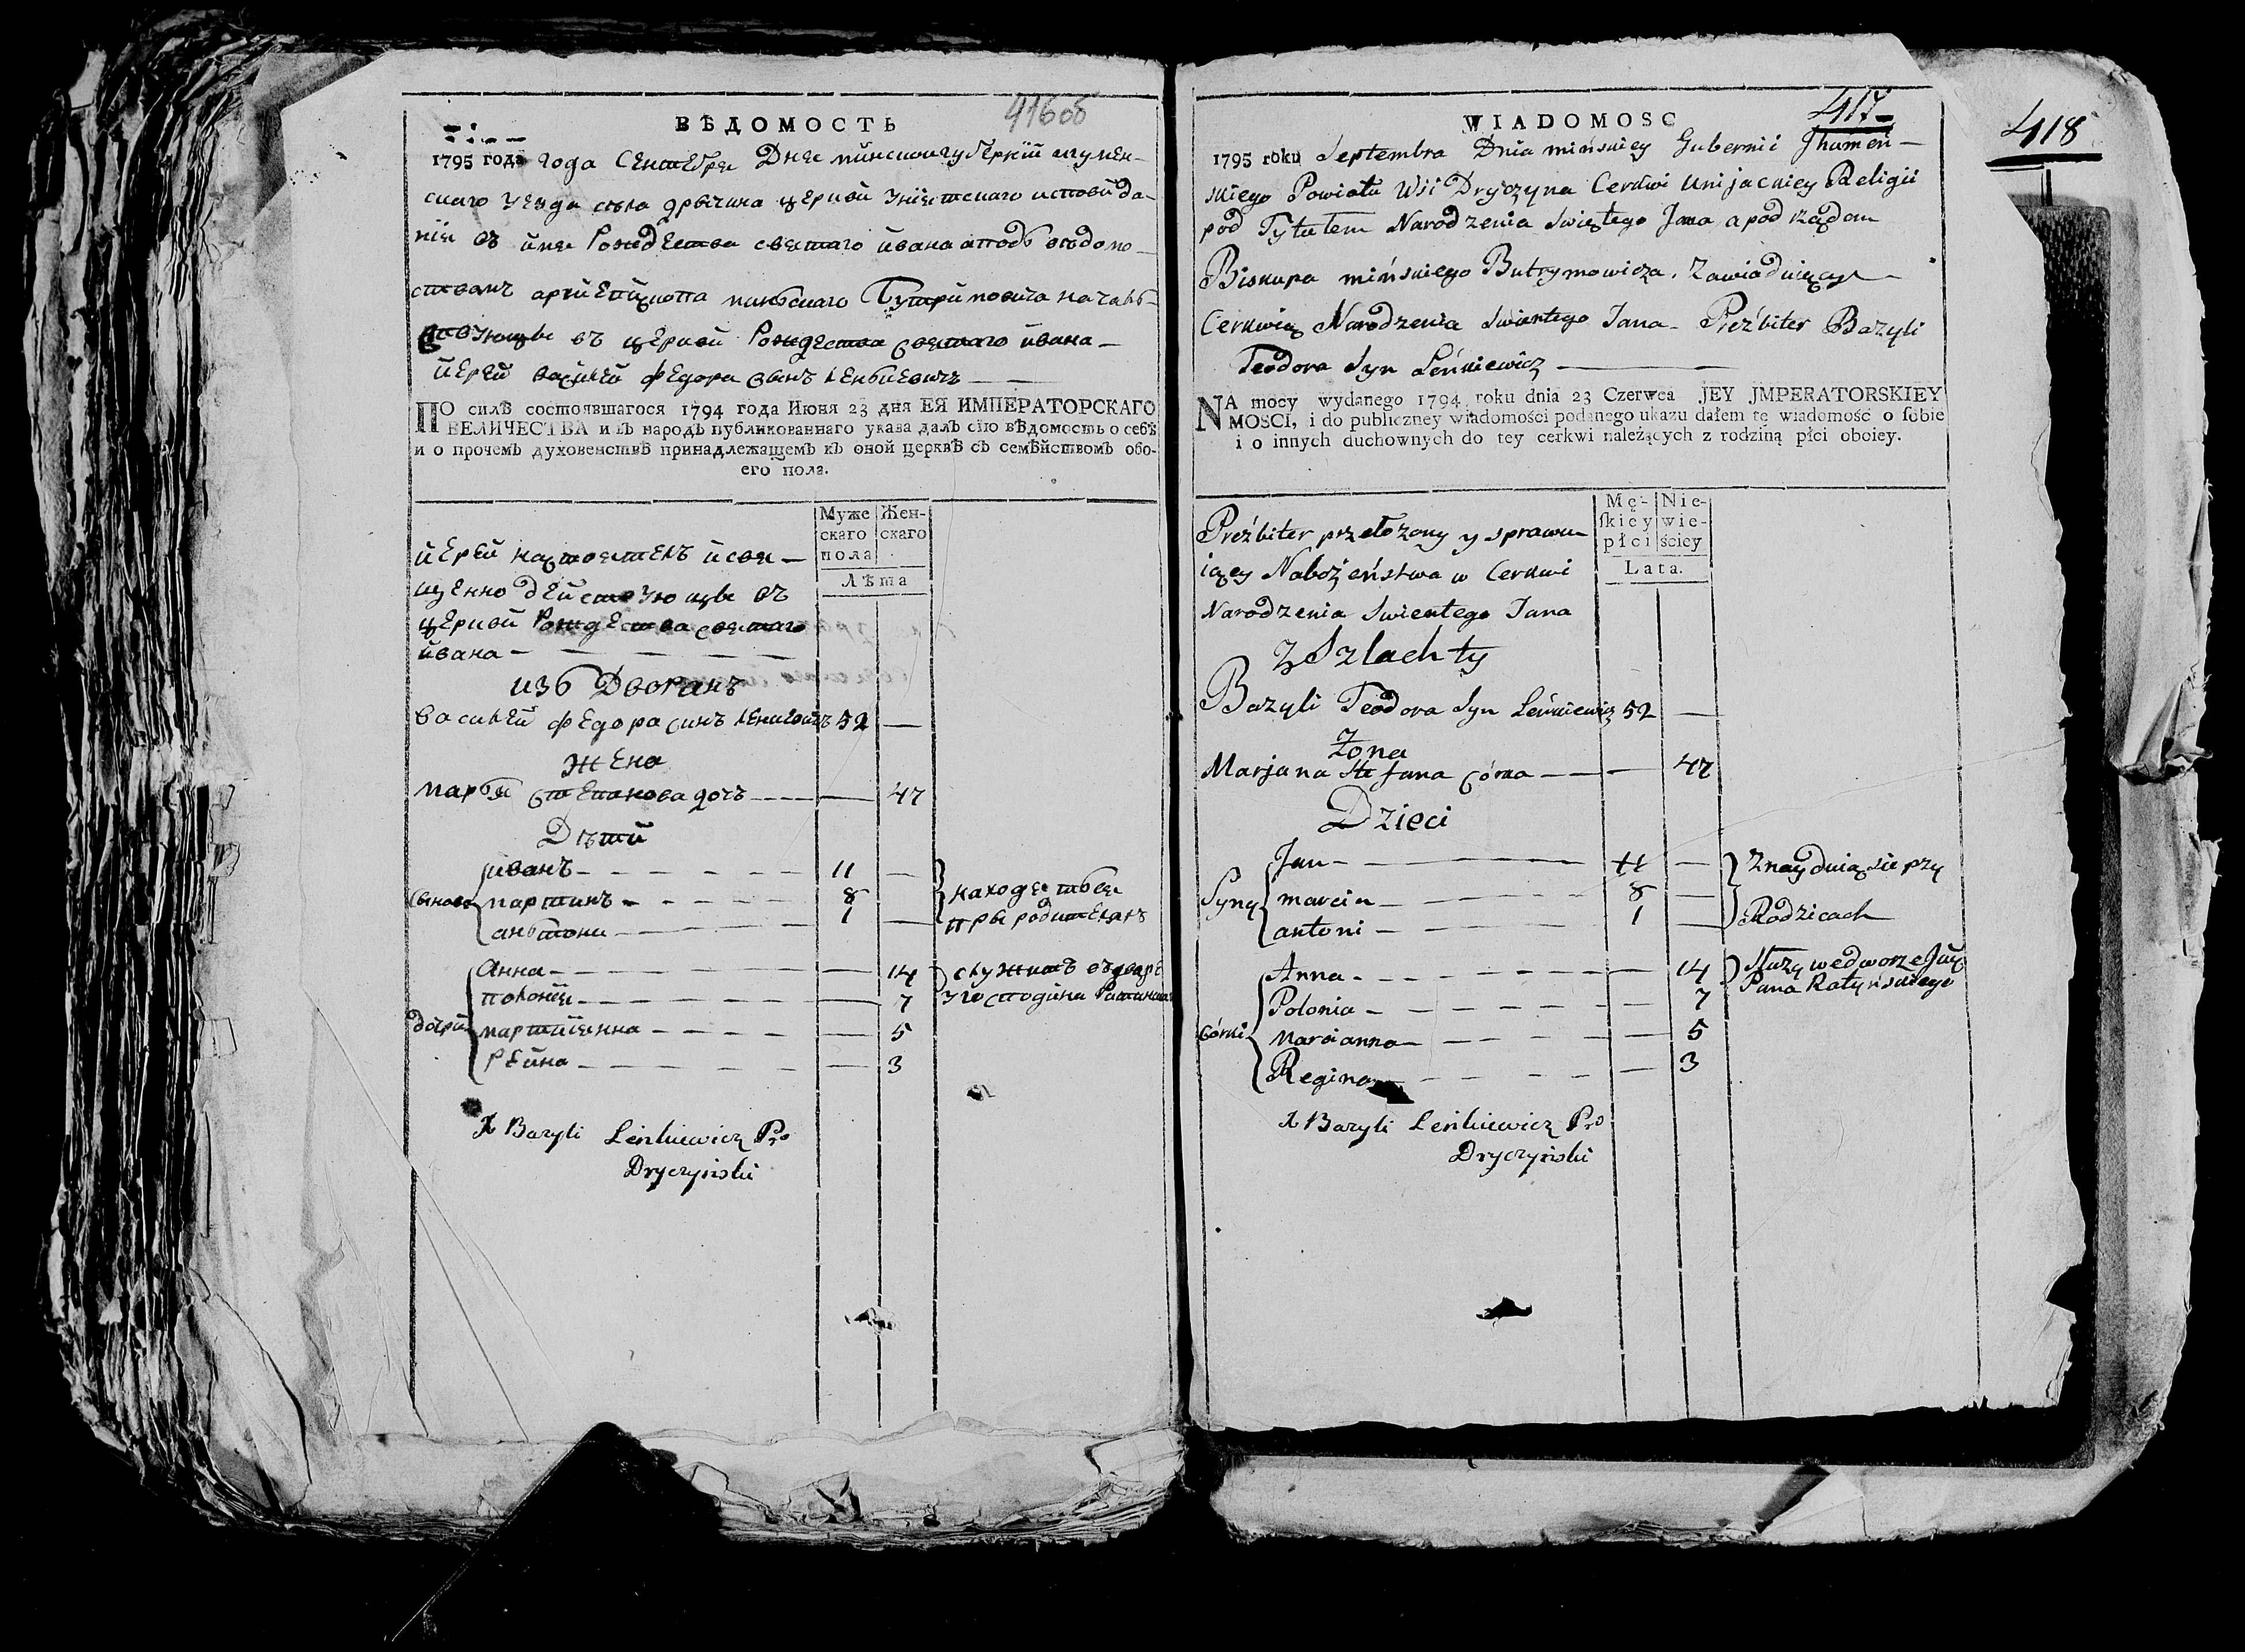 416об
ВѢДОМОСТЬ
1795 года года Сентебря Дня минскои губернїи игумен-
скаго уезда села дрычина церкви унїятскаго исповѣда-
нїя въ имя Рождества святаго ивана аподъ
ствамъ Бутримовича
въ церкви Рождества святаго ивана
иерей василей федора сынъ
ПО силѣ состоявшагося 1794 года Июня 23 дня ЕЯ ИМПЕРАТОРСКАГО
ВЕЛИЧЕСТВА и въ народъ публикованнаго указа далъ сїю вѣдомость о себѣ
и о прочемъ духовенствѣ принадлежащемъ къ оной церквѣ съ семѣйствомъ обо-
его пола.
Муже Жен-
скаго скаго
пола
Лѣта
иерей настоятель и свя-
щенно действующы въ
церкви Рождества святаго
ивана
изъ Дворанъ
василей федора синъ 52 —
жена
степанова дочь — 47
Дѣти
иванъ 11 —
сынове мартинъ 8
анътони 1 —
находятъся
пры родителяхъ
Анна — 14
полонїя — 7
мартиянна — 5
Реина — 3
служитъ
у господина
X Bazyli Leńkiewicz Pro
Dryczyński
417
WIADOMOSC
1795 roku Septembra Dnia mińskiey Gubernii Jhumeń-
skiego Powiatu Wsi Dryczyna Cerkwi Unijackiey Religii
pod Tytułem Narodzenia Swiętego Jana a pod rządem
Biskupa mińskiego Butrymowicza. Zawiaduiący
Cerkwią Narodzenia Swientego Jana – Prezbiter Bazyli
Teodora Syn Leńkiewicz
NA mocy wydanego 1794 roku dnia 23 Czerwca JEY JMPERATORSKIEY
MOSCI, i do publiczney wiadomości podanego ukazu dałem tę wiadomość o sobie
i o innych duchownych do tey cerkwi należących z rodziną płci oboiey.
Mę- Nie-
skiey wie-
płci ściey
Lata.
Prezbiter przełożony y sprawu-
iący Nabożeństwa w Cerkwi
Narodzenia Swientego Jana
z Szlachty
Bazyli Teodora Syn Leńkiewicz 52 —
Żona
Marjana Stefana córka — 47
Dzieci
Jan 11 —
Syny marcin 8 —
antoni 1 —
Znayduią sie przy
Rodzicach
Anna — 14
Polonia — 7
Córki Marcianna — 5
Regina — 3
Służy we dworze
Pana Ratyńskiego
X Bazyli Leńkiewicz Pro
Dryczyński
418